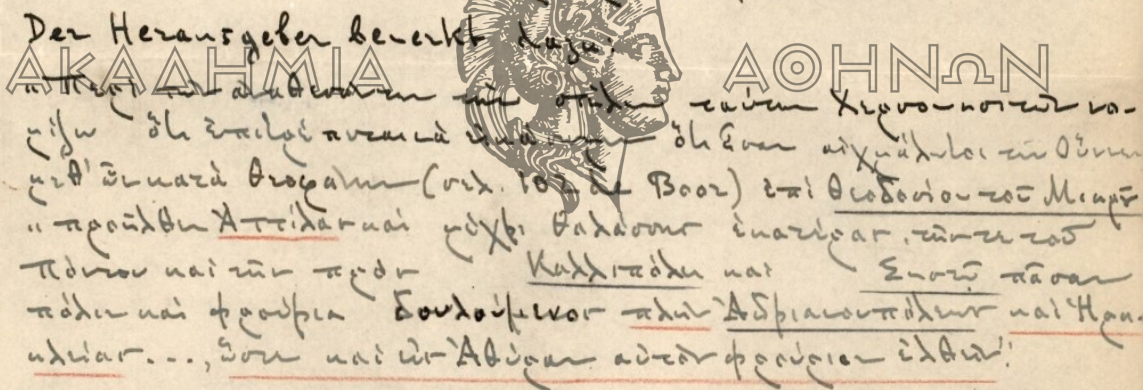 Der Herausgeber bemerkt dazu:
ΑΚΑΔΗΜΙΑ ΑΘΗΝΩΝ
"Περὶ τῶν ἀναθεσάντων τὴν στήλην ταύτην Χερσονησιτῶν νο-
μίζω ὅτι ἐπιτρέπεται νὰ εἰκάσωμεν ὅτι ἦσαν αἰχμάλωτοι τῶν Οὕννων
μεθ' ὧν κατὰ Θεοφάνην (σελ. 102 de Boor) ἐπὶ Θεοδοσίου τοῦ Μικροῦ
"προῆλθεν Ἀττίλας καὶ μέχρι θαλάσσης ἑκατέρας, τῆς τε τοῦ
Πόντου καὶ τῆς πρὸς Καλλιπόλει καὶ Σηστῷ πᾶσαν
πόλιν καὶ φρούρια δουλούμενος πλὴν Ἀδριανουπόλεως καὶ Ἡρα-
κλείας..., ὥστε καὶ εἰς Ἀθύραν αὐτὸν φρούριον ἐλθεῖν".